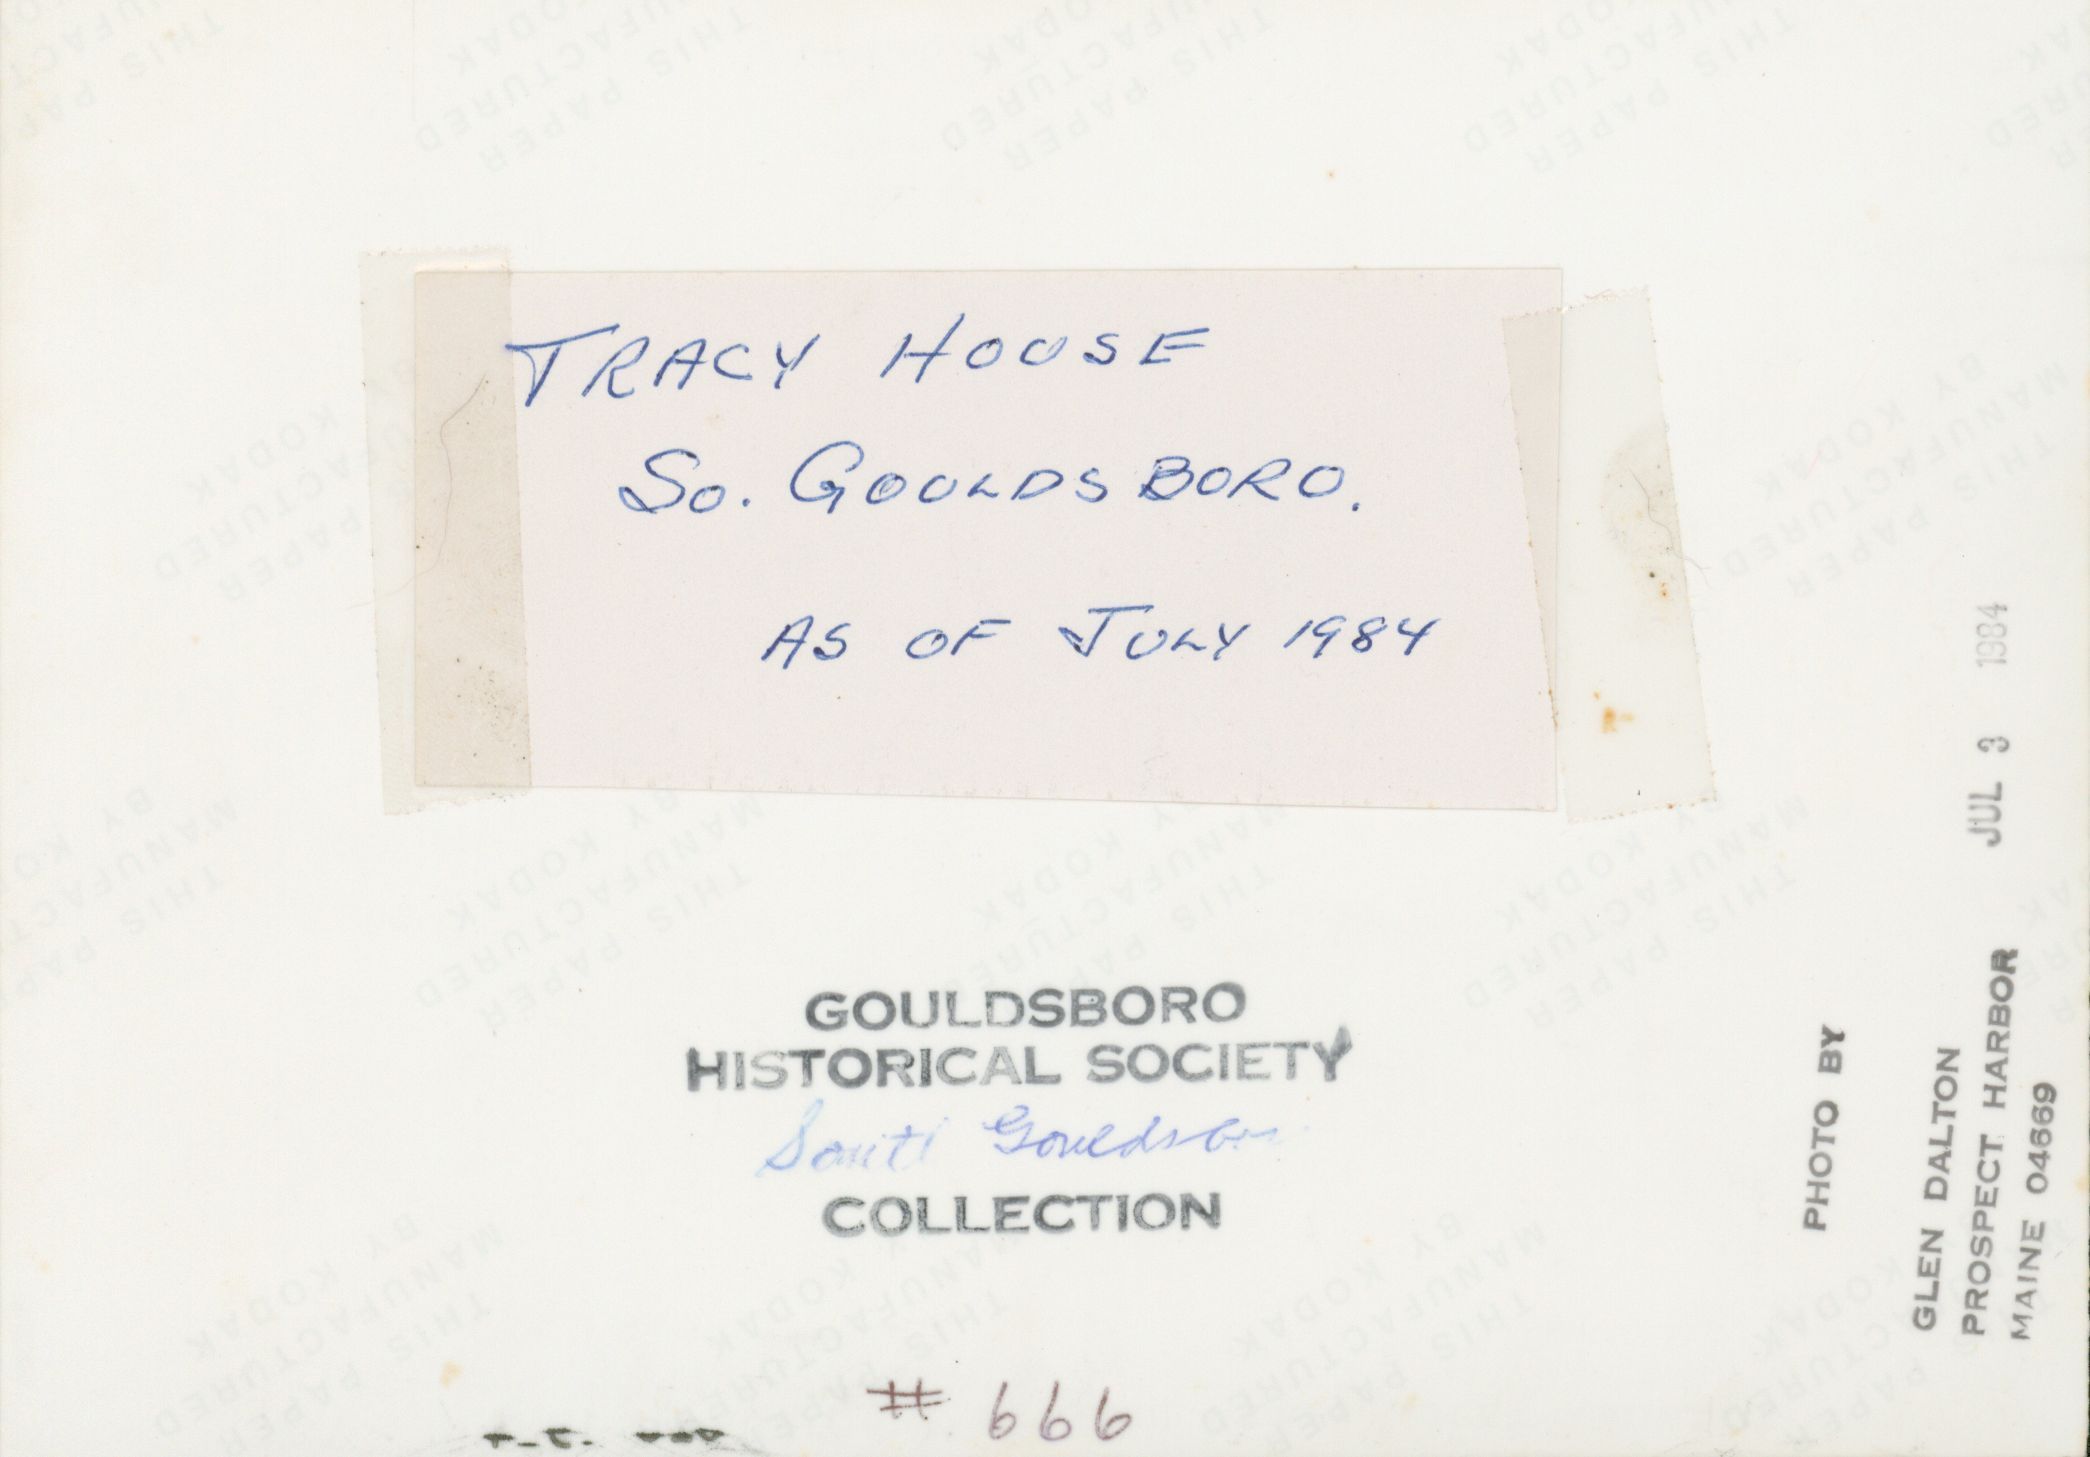 TRACY HOUSE
So. GOULDSBORO.
AS OF JULY 1984
GOULDSBORO
HISTORICAL SOCIETY
South Gouldsboro
COLLECTION
# 666
PHOTO BY
GLEN DALTON
PROSPECT HARBOR
MAINE 04669
JUL 3 1984
THIS PAPER
MANUFACTURED
BY KODAK